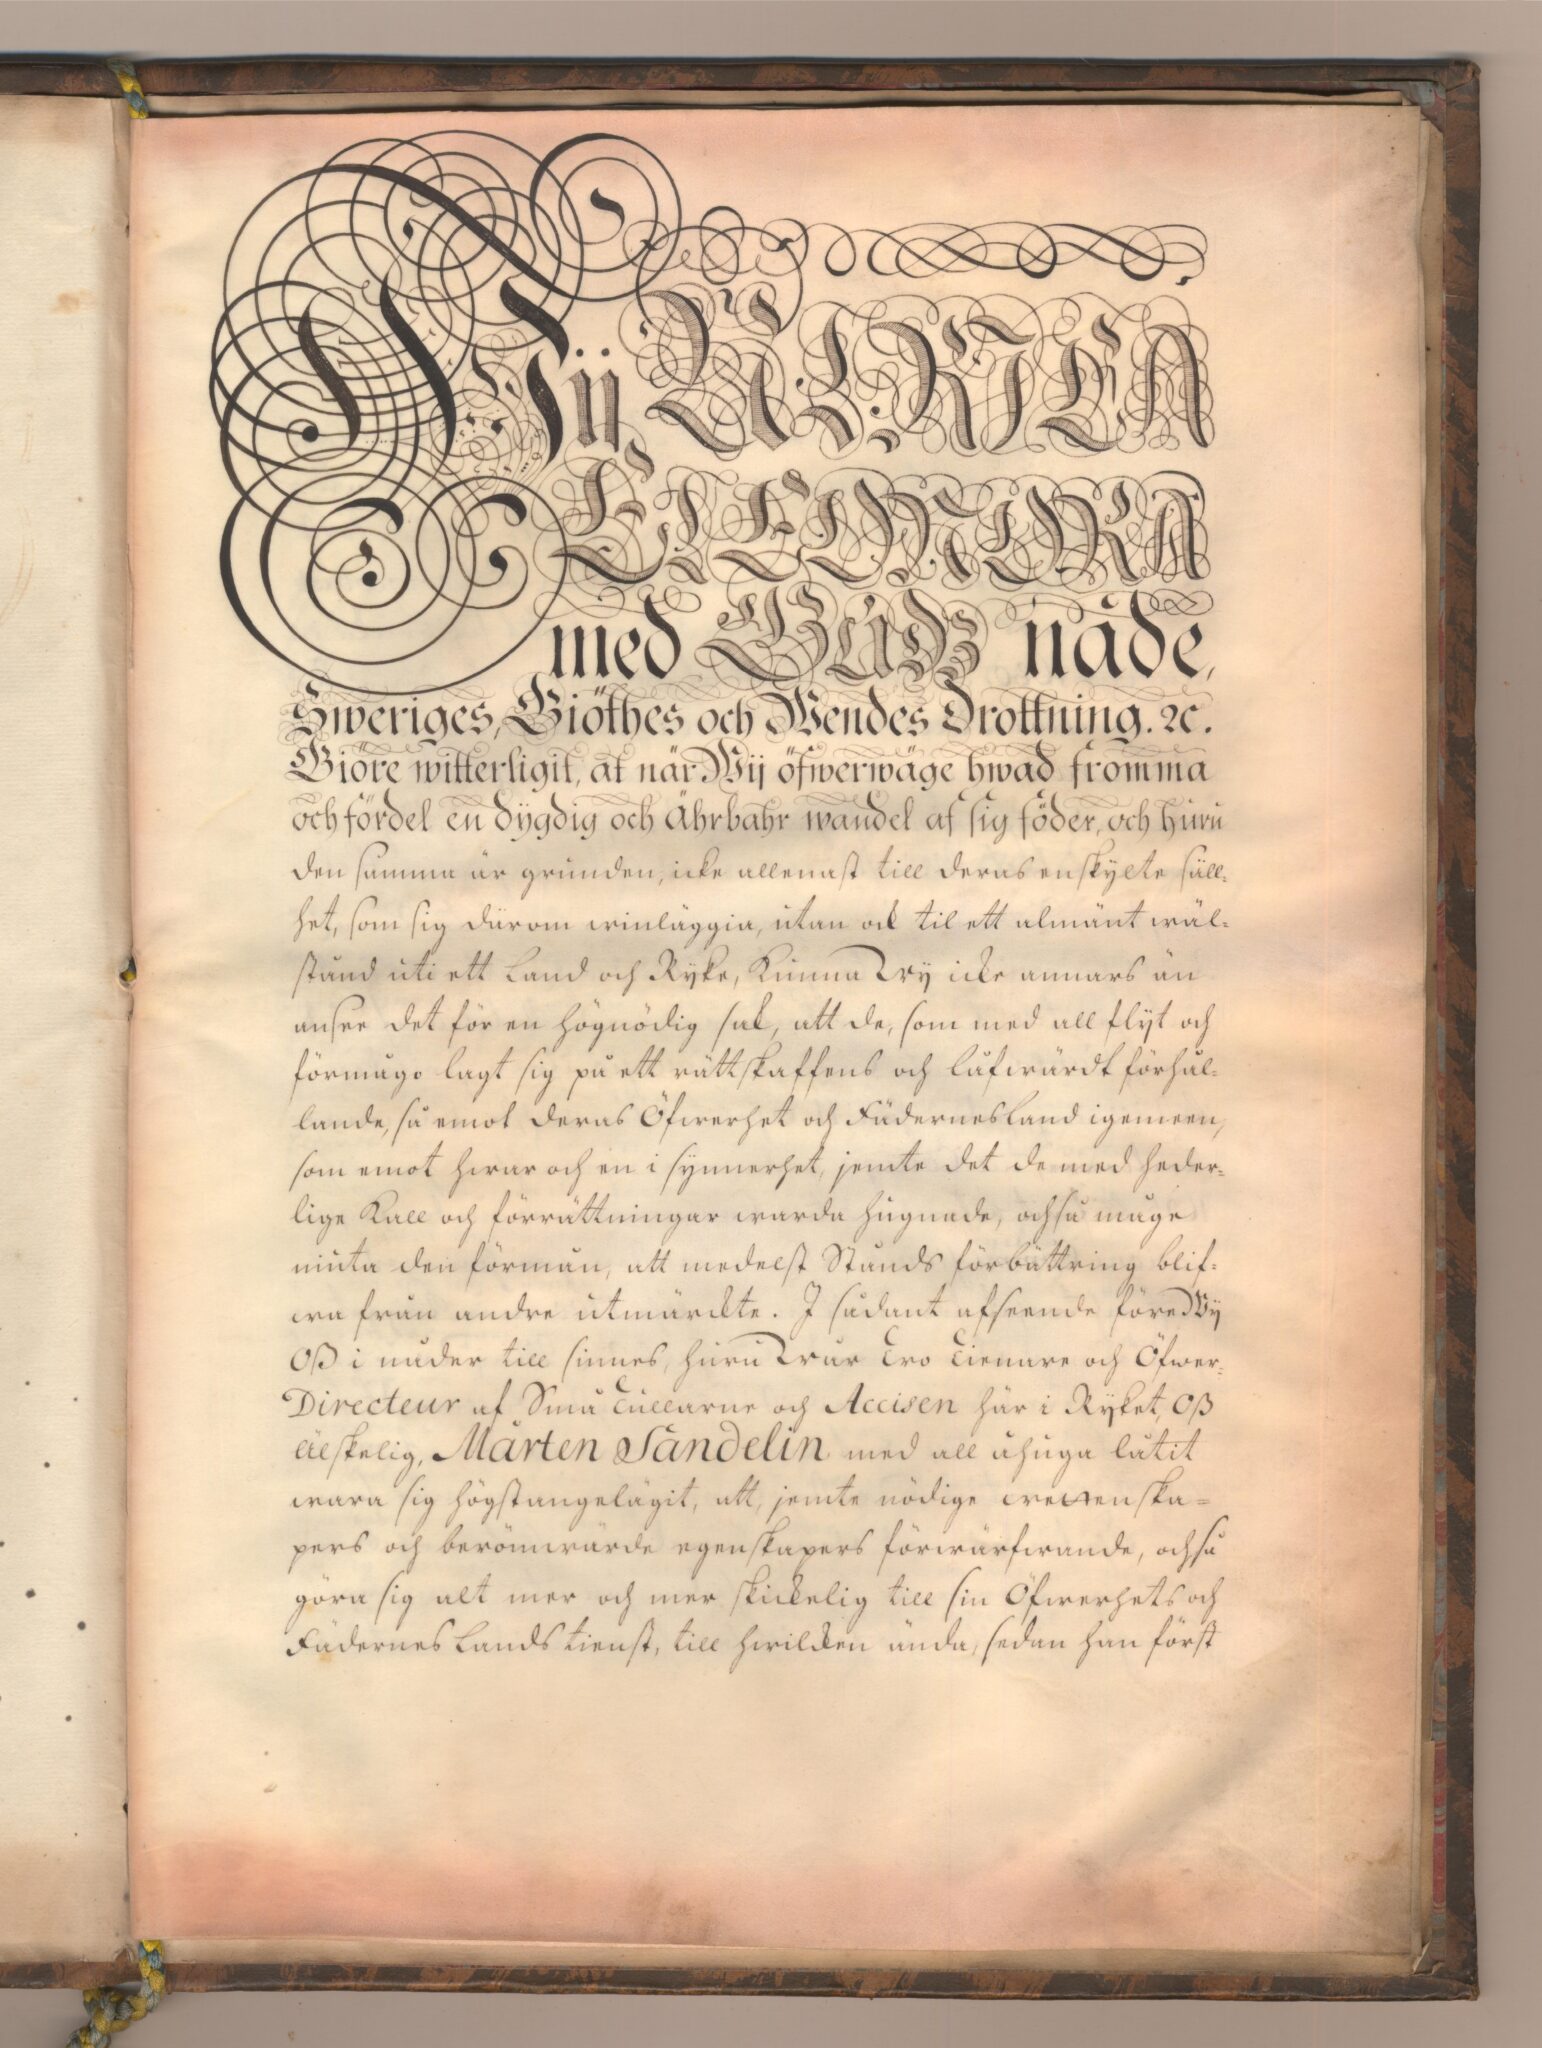 Wij ULRICA
ELEONORA
med Gudz nåde,
Sweriges, Giöthes och Wendes Drottning. &c.
Giöre witterligit, at när Wij öfwerwäge hwad fromma
och fördel en dygdig och Ährbahr wandel af sig föder, och huru
den samma är grunden, icke allenast till deras enskylte säll-
het, som sig därom winläggia, utan ock til ett almänt wäl-
stånd uti ett Land och Ryke, Kunna Wy icke annars än
ansee det för en högnödig sak, att de, som med all flyt och
förmågo lagt sig på ett rättskaffens och låfwärdt förhål-
lande, så emot deras Öfwerhet och Fädernesland igemeen,
som emot hwar och en i synnerhet, jemte det de med heder-
lige Kall och förrättningar warda hugnade, ochså måge
niuta den förmån, att medelst Stånds förbättring blif-
wa från andre utmärckte. I sådant afseende före Wy
Oß i nåder till sinnes, huru Wår Tro Tienare och Öfwer-
Directeur af Små Tullarne och Accisen här i Ryket, Oß
älskelig, Mårten Sandelin med all åhuga låtit
wara sig högstangelägit, att, jemte nödige wettenska-
pers och berömwärde egenskapers förwärfwande, ochså
göra sig alt mer och mer skickelig till sin Öfwerhets och
Fädernes Lands tienst, till hwilcken ända, sedan han först